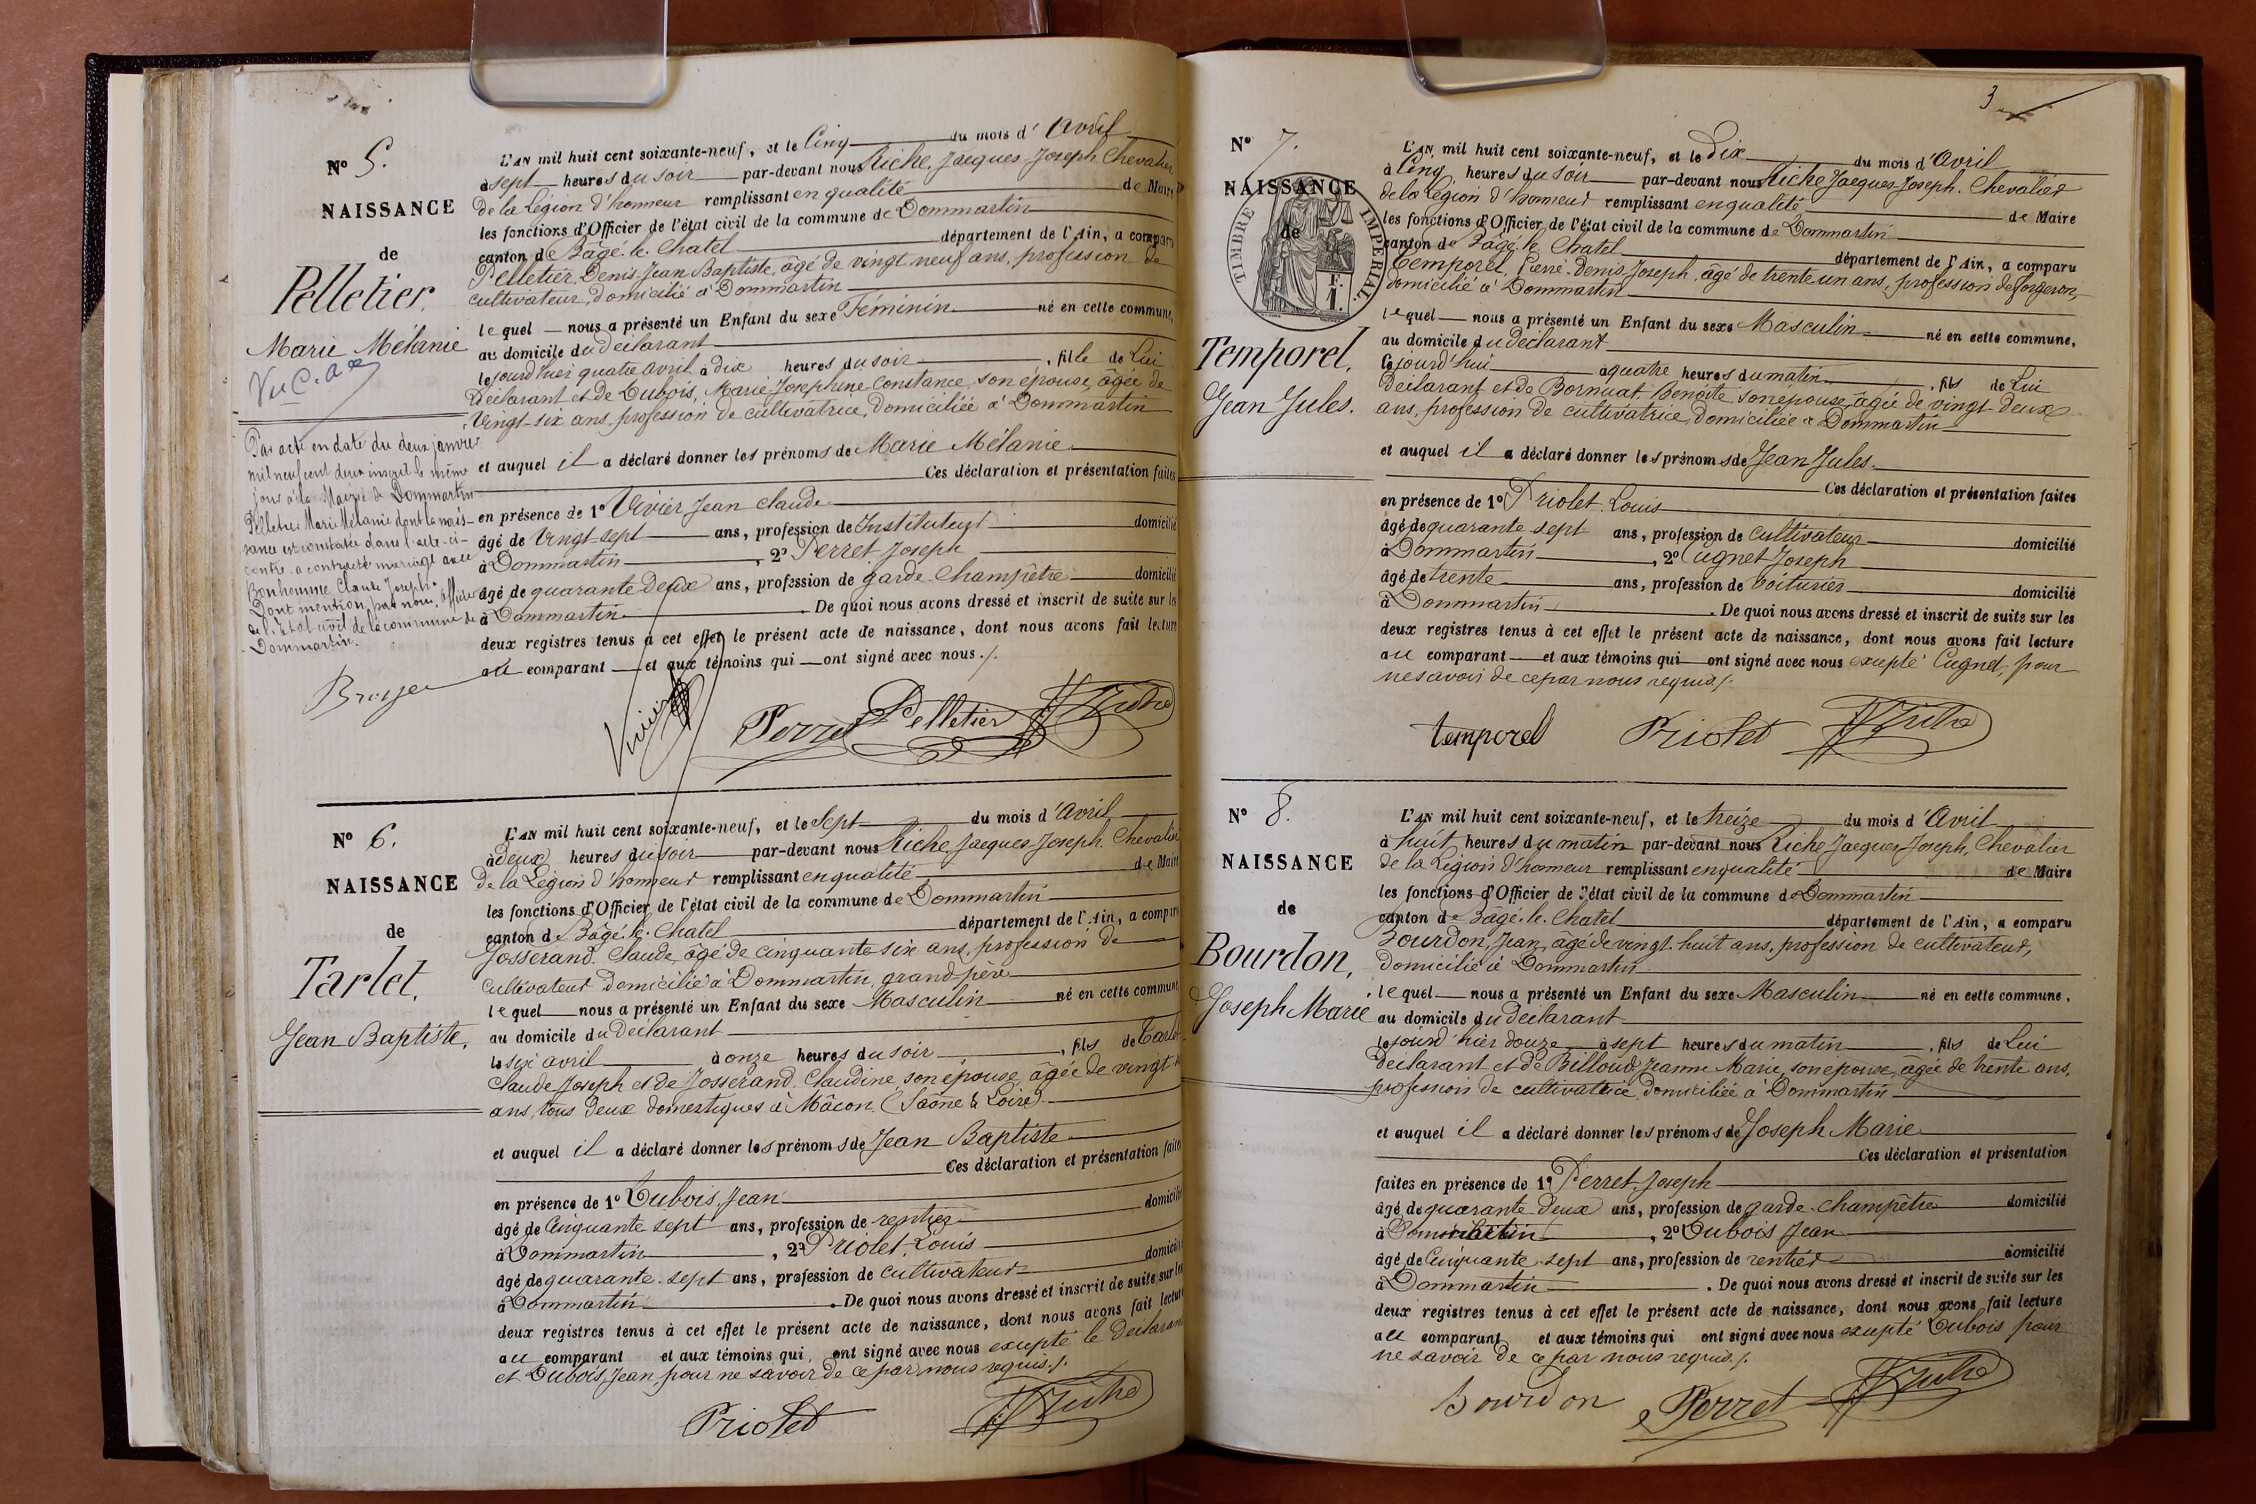 Nº 5.
NAISSANCE
de
Pelletier.
Marie Mélanie
Vu C. a
Par acte en date du deux janvier
mil neuf cent deux inscrit le même
jour à la Mairie de Dommartin
Pelletier Marie Mélanie dont la nais-
sance est constatée dans l'acte ci-
contre a contracté mariage avec
Bonhomme Claude Joseph.
Dont mention par nous, officier
de l'Etat civil de la commune de
Dommartin.
L'AN mil huit cent soixante-neuf, et le Cinq du mois d'Avril
à sept heures du soir par-devant nous Riche, Jacques Joseph Chevalier
de la Légion d'honneur remplissant en qualité de Maire
les fonctions d'Officier de l'état civil de la commune de Dommartin
canton de Bâgé-le-Chatel département de l'Ain, a comparu
Pelletier, Denis Jean Baptiste, âgé de vingt neuf ans, profession de
cultivateur, domicilié à Dommartin
lequel nous a présenté un Enfant du sexe Féminin né en cette commune,
au domicile du déclarant
le jour d'hier quatre avril à dix heures du soir, fille de Lui
déclarant et de Dubois, Marie Josephine Constance, son épouse, âgée de
vingt-six ans, profession de cultivatrice, domiciliée à Dommartin
et auquel il a déclaré donner les prénoms de Marie Mélanie
Ces déclaration et présentation faites
en présence de 1º Vivier Jean Claude
âgé de vingt sept ans, profession de Instituteur domicilié
à Dommartin, 2º Perret Joseph
âgé de quarante deux ans, profession de garde-champêtre domicilié
à Dommartin. De quoi nous avons dressé et inscrit de suite sur les
deux registres tenus à cet effet le présent acte de naissance, dont nous avons fait lecture
au comparant et aux témoins qui ont signé avec nous./.
Vivier Perret Pelletier JJRiche
Nº 6.
NAISSANCE
de
Tarlet.
Jean Baptiste.
L'AN mil huit cent soixante-neuf, et le Sept du mois d'Avril
à deux heures du soir par-devant nous Riche, Jacques Joseph Chevalier
de la Légion d'honneur remplissant en qualité de Maire
les fonctions d'Officier de l'état civil de la commune de Dommartin
canton de Bâgé-le-Chatel département de l'Ain, a comparu
Josserand Claude âgé de cinquante-six ans, profession de
cultivateur domicilié à Dommartin, grand-père
lequel nous a présenté un Enfant du sexe Masculin né en cette commune
au domicile du déclarant
le six avril à onze heures du soir, fils de Tarlet
Claude Joseph et de Josserand Claudine, son épouse, âgée de vingt
ans, tous deux domestiques à Mâcon (Saône & Loire).
et auquel il a déclaré donner les prénoms de Jean Baptiste
Ces déclaration et présentation faites
en présence de 1º Dubois, Jean
âgé de Cinquante sept ans, profession de rentier domicilié
à Dommartin, 2º Priolet, Louis
âgé de quarante-sept ans, profession de cultivateur domicilié
à Dommartin. De quoi nous avons dressé et inscrit de suite sur les
deux registres tenus à cet effet le présent acte de naissance, dont nous avons fait lecture
au comparant et aux témoins qui ont signé avec nous excepté le déclarant
et Dubois Jean, pour ne savoir de ce par nous requis./.
Priolet JJRiche
3
Nº 7.
NAISSANCE
de
TIMBRE IMPERIAL.
F.
1.
Temporel,
Jean Jules.
L'AN mil huit cent soixante-neuf, et le Dix du mois d'Avril
à Cinq heures du soir par-devant nous Riche Jacques Joseph. Chevalier
de la Légion d'honneur remplissant en qualité de Maire
les fonctions d'Officier de l'état civil de la commune de Dommartin
canton de Bâgé-le-Chatel département de l'Ain, a comparu
Temporel, Pierre Denis Joseph, âgé de trente un ans, profession de forgeron,
domicilié à Dommartin
lequel nous a présenté un Enfant du sexe Masculin né en cette commune,
au domicile du déclarant
Cejourd'hui à quatre heures du matin, fils de Lui
déclarant et de Bornuat Benoite, son épouse, âgée de vingt-deux
ans, profession de cultivatrice, domiciliée à Dommartin
et auquel il a déclaré donner les prénoms de Jean Jules.
Ces déclaration et présentation faites
en présence de 1º Priolet Louis
âgé de quarante sept ans, profession de cultivateur domicilié
à Dommartin, 2º Cugnet Joseph
âgé de trente ans, profession de voiturier domicilié
à Dommartin. De quoi nous avons dressé et inscrit de suite sur les
deux registres tenus à cet effet le présent acte de naissance, dont nous avons fait lecture
au comparant et aux témoins qui ont signé avec nous excepté Cugnet, pour
ne savoir de ce par nous requis./.
temporel Priolet JJRiche
Nº 8.
NAISSANCE
de
Bourdon,
Joseph Marie
L'AN mil huit cent soixante-neuf, et le treize du mois d'Avril
à huit heures du matin par-devant nous Riche Jacques Joseph, Chevalier
de la Légion d'honneur remplissant en qualité de Maire
les fonctions d'Officier de l'état civil de la commune de Dommartin
canton de Bâgé-le-Chatel département de l'Ain, a comparu
Bourdon, Jean, âgé de vingt-huit ans, profession de cultivateur,
domicilié à Dommartin
lequel nous a présenté un Enfant du sexe Masculin né en cette commune,
au domicile du déclarant
le jour d'hier douze à sept heures du matin, fils de Lui
déclarant et de Billoud Jeanne Marie, son épouse, âgée de trente ans,
profession de cultivatrice, domiciliée à Dommartin
et auquel il a déclaré donner les prénoms de Joseph Marie
Ces déclaration et présentation
faites en présence de 1º Perret Joseph
âgé de quarante-deux ans, profession de garde-champêtre domicilié
à Dommartin, 2º Dubois Jean
âgé de Cinquante-sept ans, profession de rentier domicilié
à Dommartin. De quoi nous avons dressé et inscrit de suite sur les
deux registres tenus à cet effet le présent acte de naissance, dont nous avons fait lecture
au comparant et aux témoins qui ont signé avec nous excepté Dubois pour
ne savoir de ce par nous requis./.
Bourdon Perret JJRiche